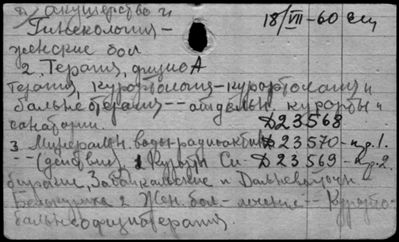 Д акушерство и 18/VII-60
Гинекология-
женские бол
2. Терапия, физио
терапия, курортология-курортология и
бальнеотерапия--отдельн. курорты и
санатории. Д23568
3 Минеральн. воды радиоактивн Д23570-пр.1.
--(действие) 1 Курорты Си- Д23569-пр.2.
бирские, Забайкальские и Дальневосточн
Белокуриха 2 Жен. бол-лечение--Курорто-
бальнеофизиотерапия.